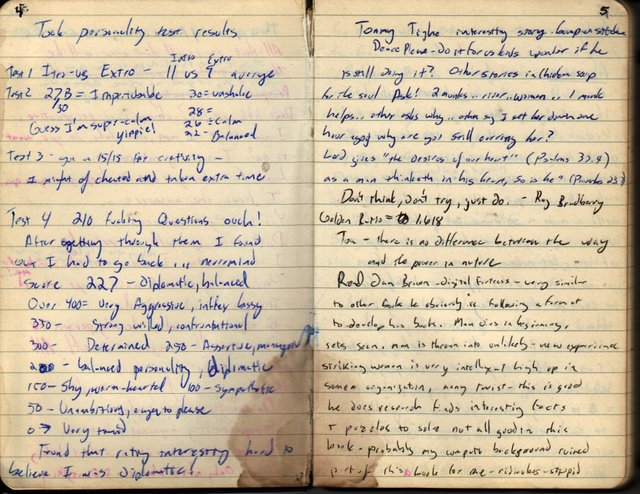 4
Took personality test results
Intro Extro
Test 1 Intro-vs Extro - 11 vs 7 average
Test 2 27B = Imperturbable 30= unshakable
/30 28=
Guess I'm super-calm 26 = Calm
yippie! 22 - Balanced
Test 3 - 15/15 for creativity -
I might of cheated and taken extra time
Test 4 240 Fucking Questions ouch!
After going through them I found
out I had to go back ... nevermind
Score 227 - Diplomatic, balanced
Over 400= Very Aggressive, bossy
350 - Strong willed, confrontational
300 - Determined 250 - Assertive,
200 - balanced personality, diplomatic
150 - Shy, warm-hearted 100 - Sympathetic
50 - Unambitious, eager to please
0 → Very timid
Found that rating interesting hard to
believe I was diplomatic!
5
Tommy Tighe interesting story
Peace Please - Do it for us kids wonder if he
is still doing it? Other stories in chicken soup
for the soul Ask! 2 monks.. river.. women.. 1 monk
helps.. other asks why.. other say I set her down one
hour ago why are you still carrying her?
Lord gives "the desires of our heart" (Psalms 37.4)
as a man thinketh in his heart, so is he" (Proverbs 23.7)
Don't think, Don't try, just do. - Ray Bradberry
Golden Ratio = 1.618
Tao - there is no difference between the way
and the power in nature
Read Dan Brown - Digital Fortress - very similar
to other books he obviously is following a format
to develop his books. Man dies in beginning,
sets scene. man is thrown into unlikely - new experience
striking woman is very intelligent high up in
some organization, many twist - this is good
he does research finds interesting facts
+ puzzles to solve not all good in this
book - probably my computer background ruined
part of this book for me - ridiculous - stupid